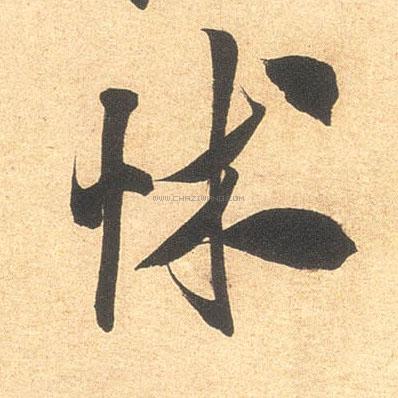 怵
WWW.CHAZIWANG.COM